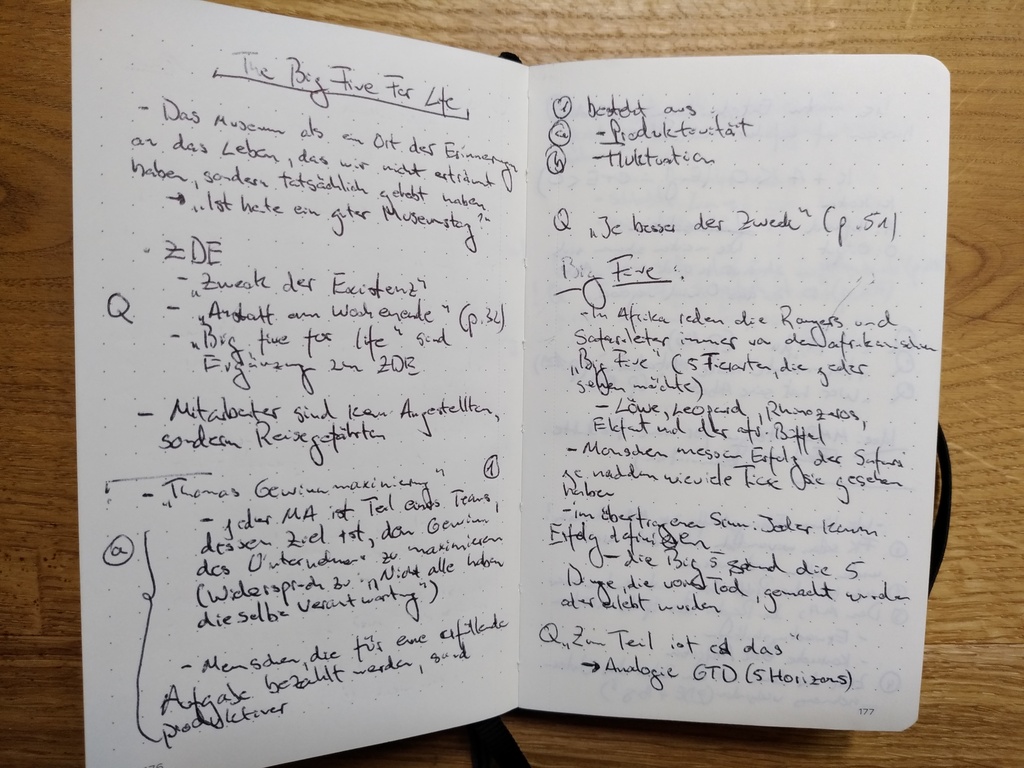 The Big Five For Life
- Das Museum als ein Ort der Erinnerung
an das Leben, das wir nicht erträumt
haben, sondern tatsächlich gelebt haben
→ „Ist heute ein guter Museumstag?"
- ZDE
- „Zweck der Existenz"
Q - „Anstatt am Wochenende" (p.32)
- „Big five for life" sind
Ergänzung zum ZDE
- Mitarbeiter sind kein Angestellten,
sondern Reisegefährten
- „Thomas Gewinnmaximierung" ①
- jeder MA ist Teil eines Teams,
ⓐ dessen Ziel ist, den Gewinn
des Unternehmen zu maximieren
(Widerspruch zu „Nicht alle haben
dieselbe Verantwortung")
- Menschen, die für eine erfüllende
Aufgabe bezahlt werden, sind
produktiver
① besteht aus:
ⓐ - Produktivität
ⓑ - Fluktuation
Q „Je besser der Zweck" (p.51)
Big Five:
- In Afrika reden die Rangers und
Safarileiter immer von den afrikanischen
„Big Five" (5 Tierarten, die jeder
sehen möchte)
- Löwe, Leopard, Rhinozeros,
Elefant und der afr. Büffel
- Menschen messen Erfolg der Safari
je nachdem wieviele Tiere sie gesehen
haben
- im übertragenen Sinn: Jeder kann
Erfolg definieren
- die Big 5 sind die 5
Dinge, die vorm Tod, gemacht wurden
oder erlebt wurden
Q „Zum Teil ist es das"
→ Analogie GTD (5 Horizons)
177